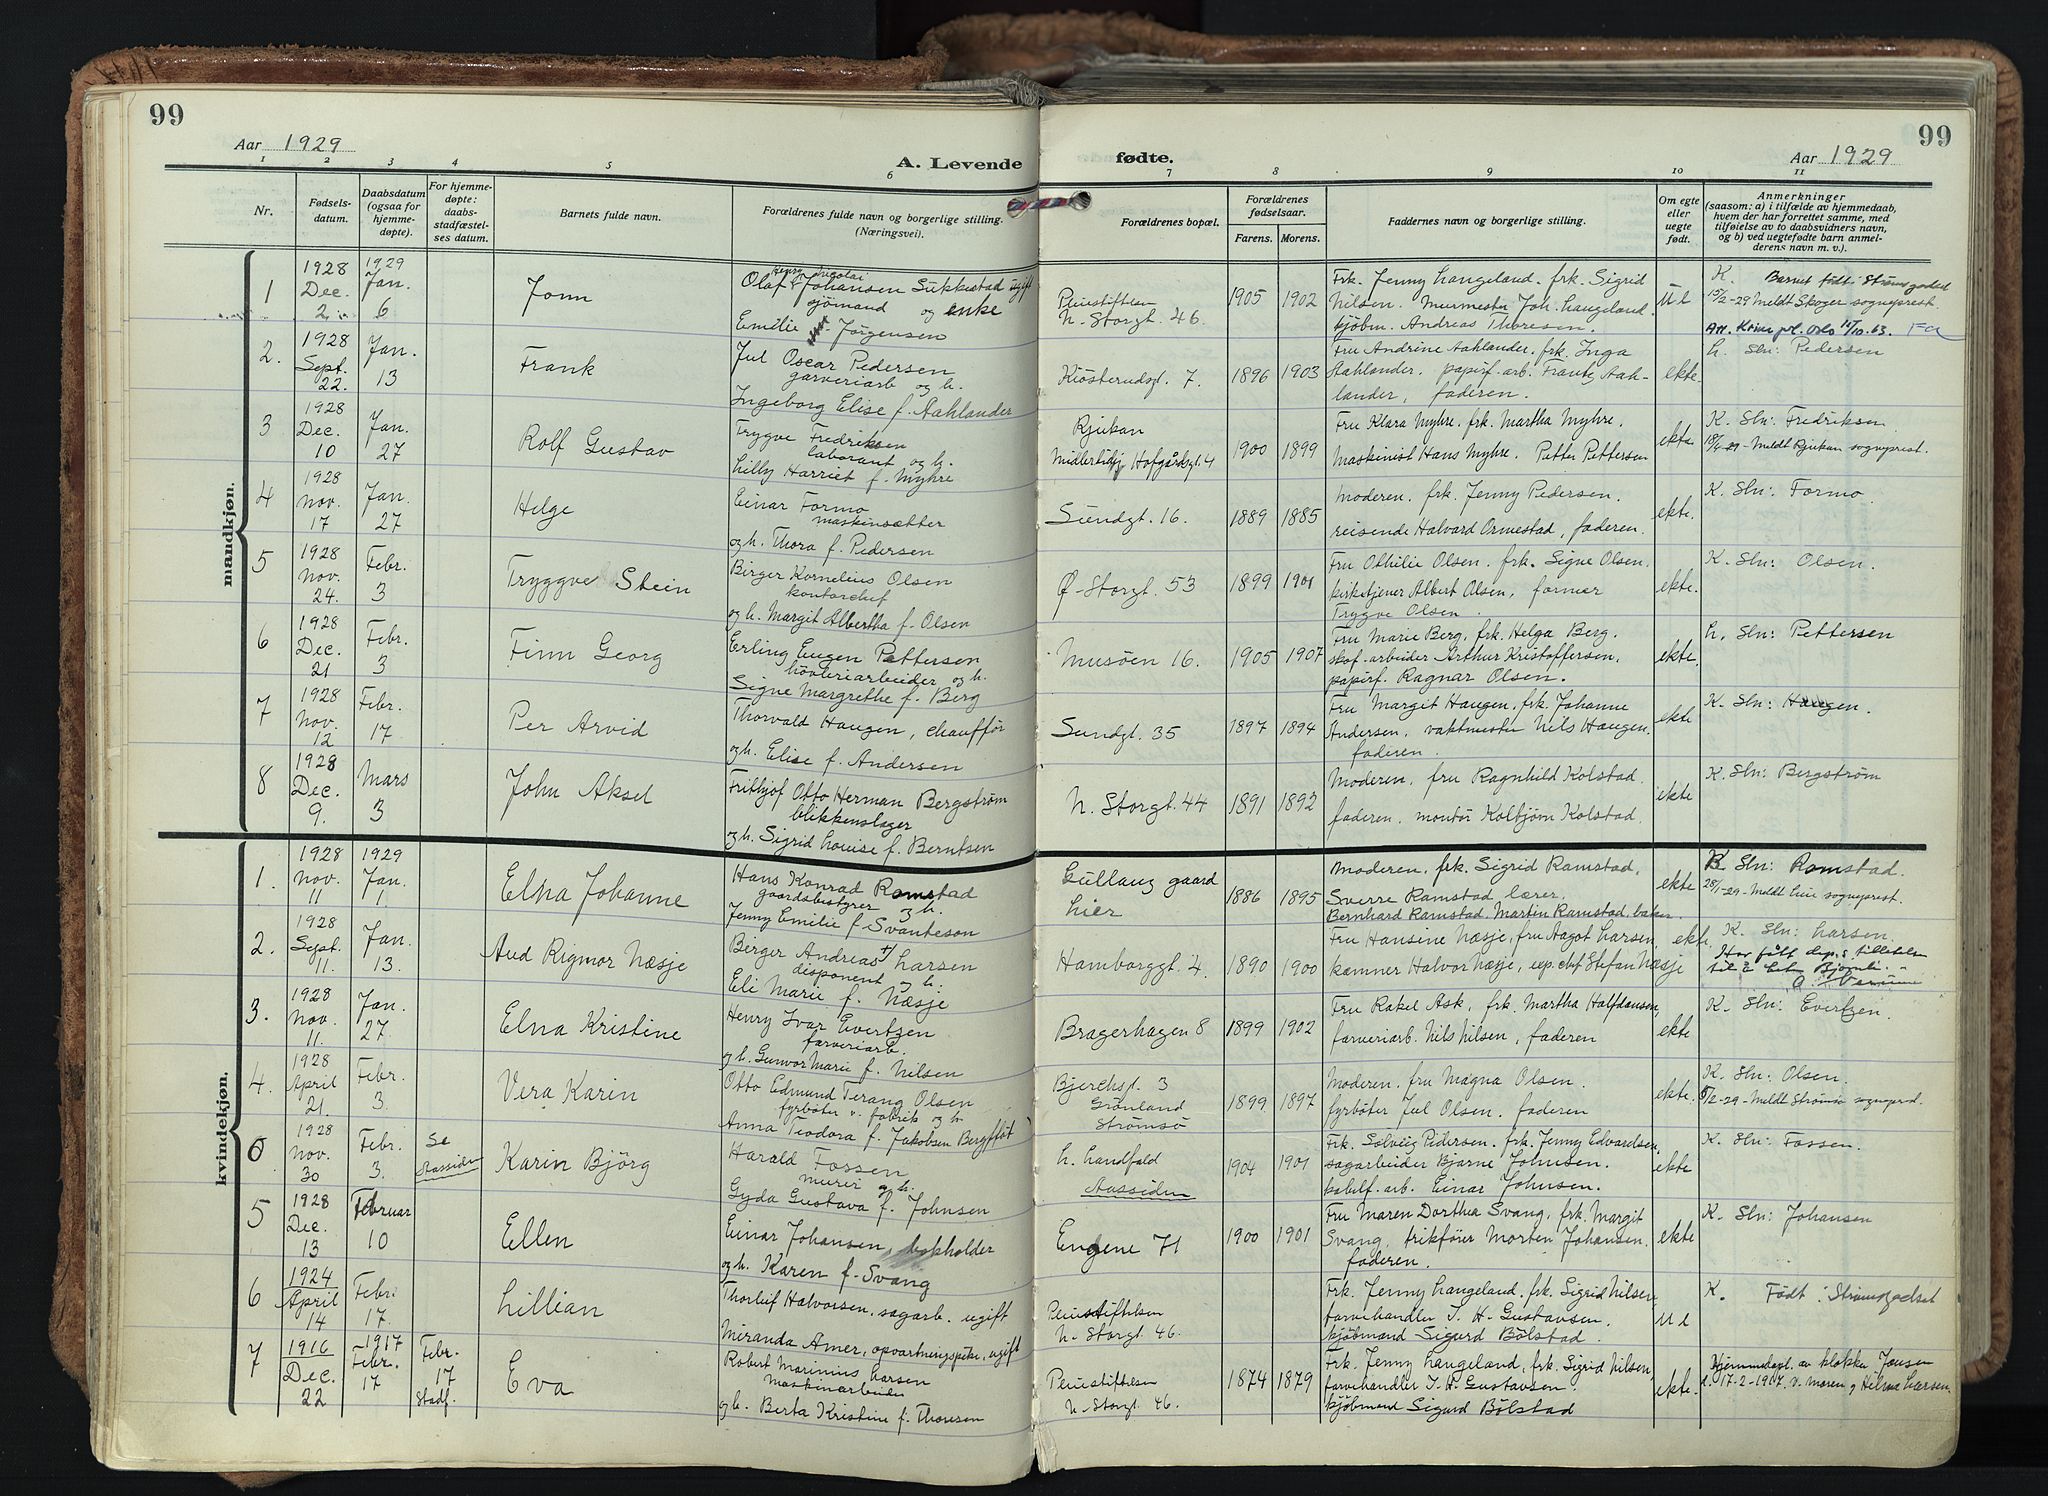 99
99
Aar 1929
A. Levende
fødte.
Aar 1929
1 2 3 4 5 6 7 8 9 10 11
Nr.
Fødsels-
datum.
Daabsdatum
(ogsaa for
hjemme-
døpte).
For hjemme-
døpte:
daabs-
stadfæstel-
ses datum.
Barnets fulde navn.
Forældrenes fulde navn og borgerlige stilling.
(Næringsvei).
Forældrenes bopæl.
Forældrenes
fødselsaar.
Farens. Morens.
Faddernes navn og borgerlige stilling.
Om egte
eller
uegte
født.
Anmerkninger
(saasom: a) i tilfælde av hjemmedaab,
hvem der har forrettet samme, med
tilføielse av to daabsvidners navn,
og b) ved uegtefødte barn anmel-
derens navn m. v.).
mandkjøn.
1
1928
Dec.
2
1929
Jan.
6
Jonn
Henry Nicolai
Olaf Johansen Sukkestad ugift
sjömand og enke
Emilie Jørgensen
Peiestiftelsen
N. Storgt. 46.
1905 1902
Frk. Jenny Langeland. frk. Sigrid
Nilsen. Murmester Joh. Langeland
kjøbm. Andreas Thoresen.
U l
K Barnet født i Strømsgodset
15/2-29 Meldt Skoger sogneprest.
Att. Krim. pol. Oslo 15/10.63.
2.
1928
Sept.
22.
Jan.
13
Frank
Jul Oscar Pedersen
garveriarb og h.
Ingeborg Elise f. Aahlander
Kiøsterudgt. 7.
1896 1903
Fru Andrine Aahlander. frk. Inga
Aahlander. papirf. arb. Frantz Aah-
lander, faderen.
ekte.
L. Sln: Pedersen
3
1928
Dec.
10
Jan.
27
Rolf Gustav
Trygve Fredriksen
laborant og h.
Lilly Harriet f. Myhre
Rjukan
Midlertidig Hofgårdsgt. 4
1900 1899
Fru Klara Myhre. frk. Martha Myhre.
Maskinist Hans Myhre. Petter Pettersen
ekte
K. Sln: Fredriksen
18/4-29 - Meldt Rjukan sogneprest.
4
1928
Nov.
17
Jan.
27
Helge
Einar Formo
maskinsætter
og h. Thora f. Pedersen
Sundgt. 16.
1889 1885
Moderen. frk. Jenny Pedersen.
reisende Halvard Ormestad, faderen.
ekte.
K. Sln: Formo
5
1928
Nov.
24.
Febr.
3
Tryggve Stein
Birger Kornelius Olsen
kontorchef
og h. Margit Albertha f. Olsen
Ø-Storgt. 53
1899 1901
Fru Othilie Olsen. frk. Signe Olsen.
kirketjener Albert Olsen, former
Trygve Olsen.
ekte.
K. Sln: Olsen.
6
1928
Dec.
21
Febr.
3
Finn Georg
Erling Eugen Pettersen
høvleriarbeider og h.
Signe Margrethe f. Berg
Musöen 16.
1905 1907
Fru Marie Berg, frk. Helga Berg.
skof-arbeider Arthur Kristoffersen,
papirf. Ragnar Olsen.
ekte.
L. Sln: Pettersen
7
1928
Nov.
12
Febr.
17
Per Arvid
Thorvald Haugen, chauffør
og h. Elise f. Andersen
Sundgt. 35
1897 1894
Fru Margit Haugen, frk. Johanne
Andersen, vaktmester Nils Haugen.
faderen.
ekte
K. Sln: Haugen.
8
1928
Dec.
9.
Mars
3
John Aksel
Frithjof Otto Herman Bergstrøm
blikkenslager
og h. Sigrid Louise f. Berntsen
N. Storgt. 44
1891 1892
Moderen, fru Ragnhild Kolstad.
faderen. montør Kolbjørn Kolstad.
ekte
K. Sln: Bergstrøm
kvindekjøn.
1.
1928
Nov.
11
1929
Jan.
1
Elna Johanne
Hans Konrad Ramstad
gaardsbestyrer og h.
Jenny Emilie f. Svanteson
Gullaug gaard
Lier
1886 1895
Moderen, frk. Sigrid Ramstad,
Sverre Ramstad lærer.
Bernhard Ramstad. Martin Ramstad, baker.
ekte
K Sln: Ramstad.
25/1-29 - Meldt Lier sogneprest.
2.
1928
Sept.
11.
Jan.
13.
Aud Rigmor Næsje
Berger Andreas Larsen
disponent og h.
Eli Marie f. Næsje
Hamborggt. 4.
1890 1900
Fru Hansine Næsje, fru Aagot Larsen,
kæmner Halvor Næsje, exp. chef Stefan Næsje
ekte.
K. Sln: Larsen.
Har fått dep.s tillatelse
3.
1928
Nov.
11.
Jan.
27.
Elna Kristine
Henry Ivar Evertzen
farveriarb.
og h. Gunvor Marie f. Nilsen
Bragerhagen 8
1899 1902
Fru Rakel Ask, frk. Martha Halfdansen,
farveriarb. Nils Nilsen, faderen
ekte
K. Sln: Evertzen.
4.
1928
April
21.
Febr.
3.
Vera Karin
Otto Edmund Terang Olsen
fyrbøter v. fabrik og h.
Anna Teodora f. Jakobsen Bergfløt
Bjerchsgt. 3
Grønland
Strømsø
1899 1897
Moderen. fru Magna Olsen.
fyrbøter Jul Olsen. faderen
ekte.
K. Sln: Olsen.
5/2-29 - Meldt Strømsø sogneprest.
0
1928
Nov.
30
Febr.
3.
Se
Aassiden
Karin Björg
Harald Fossen
murer og h.
Gyda Gustava f. Johnsen
L. Landfald
Aassiden
1904 1901
Frk. Solveig Pedersen. frk. Jenny Edvardsen,
sagarbeider Bjarne Johnsen.
kabelf. arb. Einar Johnsen.
ekte
K. Sln: Fossen.
5
1928
Dec.
13
Februar
10
Ellen
Einar Johansen, bokholder
og h. Karen f. Svang
Engene 71
1900 1901
Fru Maren Dorthea Svang, frk. Margit
Svang, trikfører Morten Johansen.
faderen.
ekte
K. Sln: Johansen
6
1924
April
14
Febr.
17.
Lillian
Thorleif Halvorsen, sagarb. ugift
Miranda Amer, opvartningspike, ugift
Peiestiftelsen
N. Storgt. 46.
Frk. Jenny Langeland. frk. Sigrid Nilsen,
farvehandler I. H. Gustavsen,
kjøbmand Sigurd Bölstad.
U l
K. Født i Strømsgodset
7
1916
Dec.
22
1917
Febr.
17
Febr.
17
Stadf.
Eva
Robert Marinius Larsen
Maskinarbeider
og h. Berta Kristine f. Thoresen
Peiestiftelsen
N. Storgt. 46.
1874 1879
Frk. Jenny Langeland, frk. Sigrid Nilsen,
farvehandler I. H. Gustavsen.
kjøbmand Sigurd Bölstad
ekte.
Hjemmedøpt av klokker Jensen
d. 17-2-1917. v. moren og Helma Larsen.